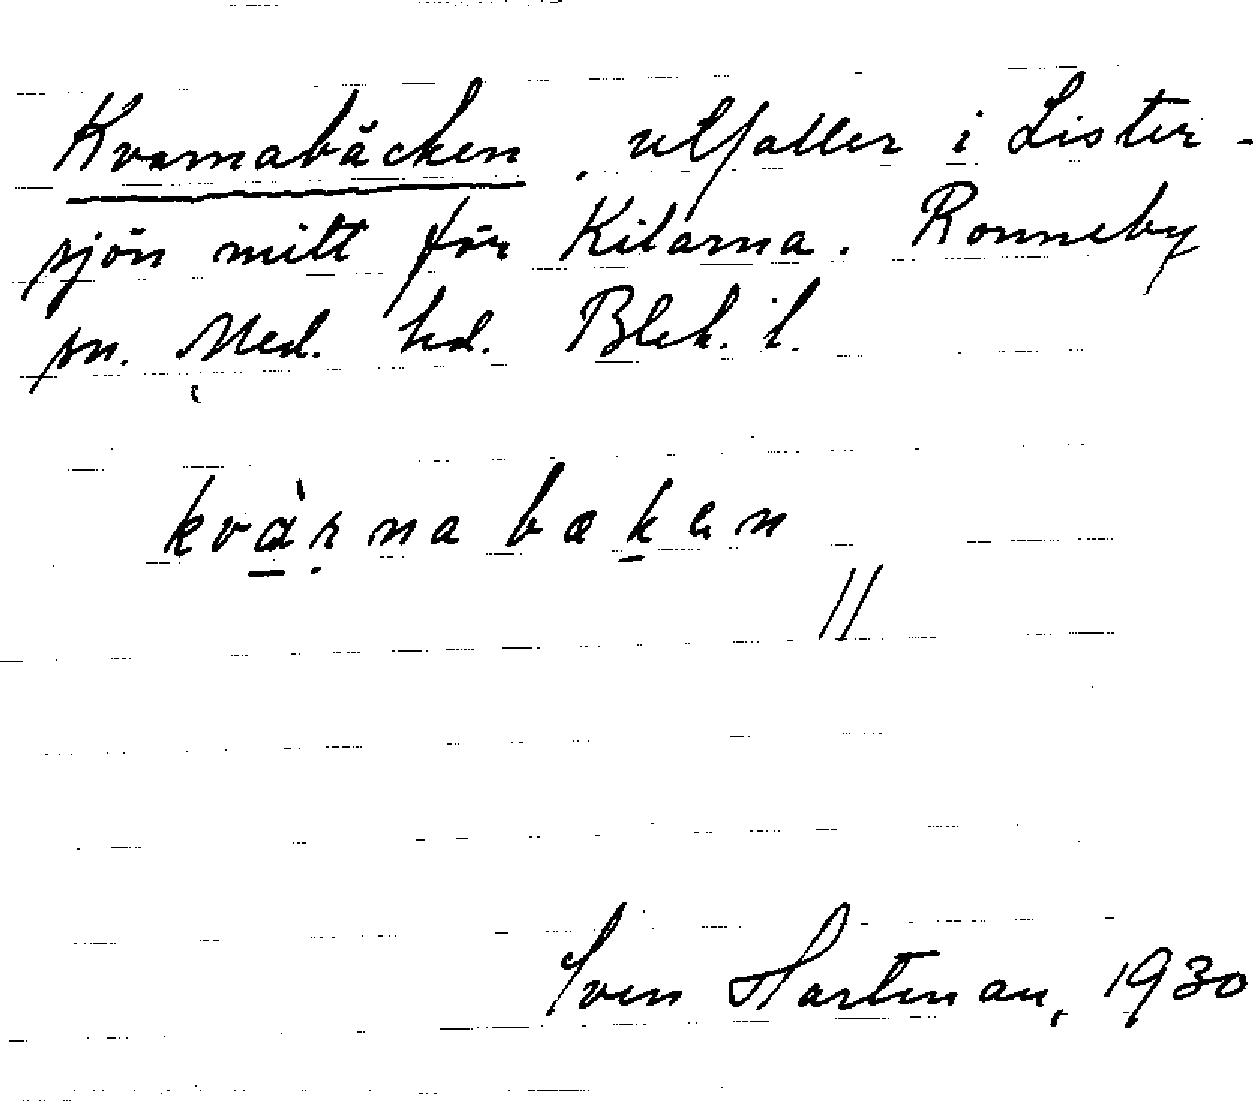 Kvarnabäcken, utfaller i Lister-
sjön mitt för Kilarna. Ronneby
sn. Med. hd. Blek. l.
kvàrnabæken
Sven Hartman, 1930